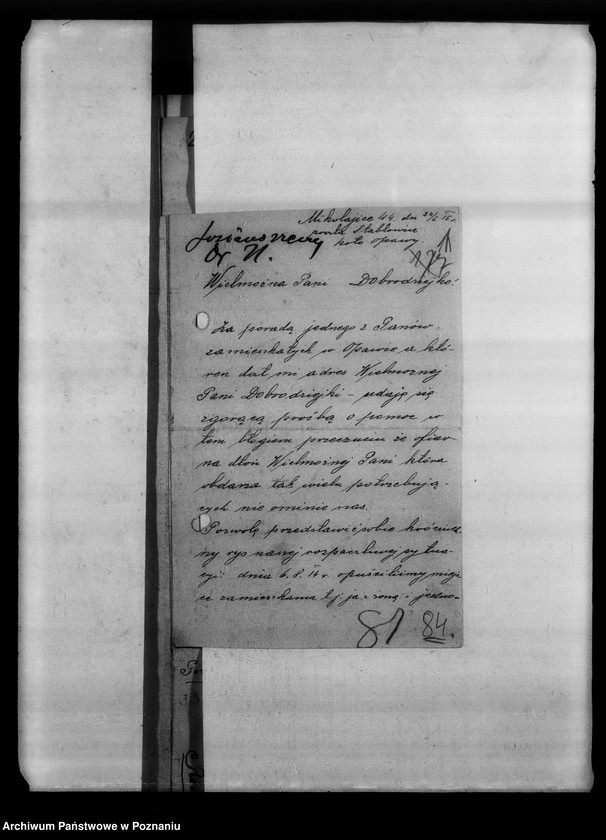 Mikołajice 44. dn 24/6 15 r.
poczta Stablowice
koło Opawy
Dr N.
Wielmożna Pani Dobrodziejko!
Za poradą jednego z Panów
zamieszkałych w Opawie a któ-
ren dał mi adres Wielmożnej
Pani Dobrodziejki – udaję się
zgorącą prośbą o pomoc w
tem błogiem przeczuciu że ofiar
na dłoń Wielmożnej Pani która
obdarza tak wielu potrzebują-
cych nie ominie nas.
Pozwolę przedstawić sobie króciut
ny rys naszej rozpaczliwej sytua-
cyi: dnia 6.8.14 r. opuściliśmy miejs
ce zamieszkania tj. ja z żoną i jedno-
81 84.
Archiwum Państwowe w Poznaniu